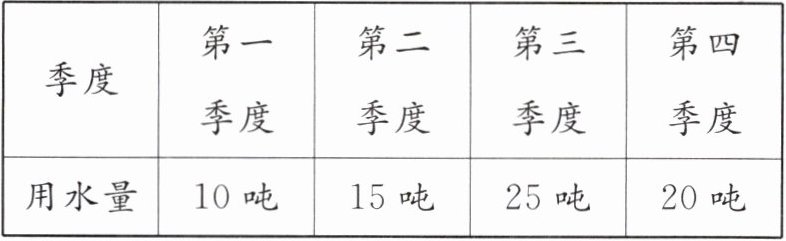 季度 第一季度 第二季度 第三季度 第四季度
用水量 10吨 15吨 25吨 20吨